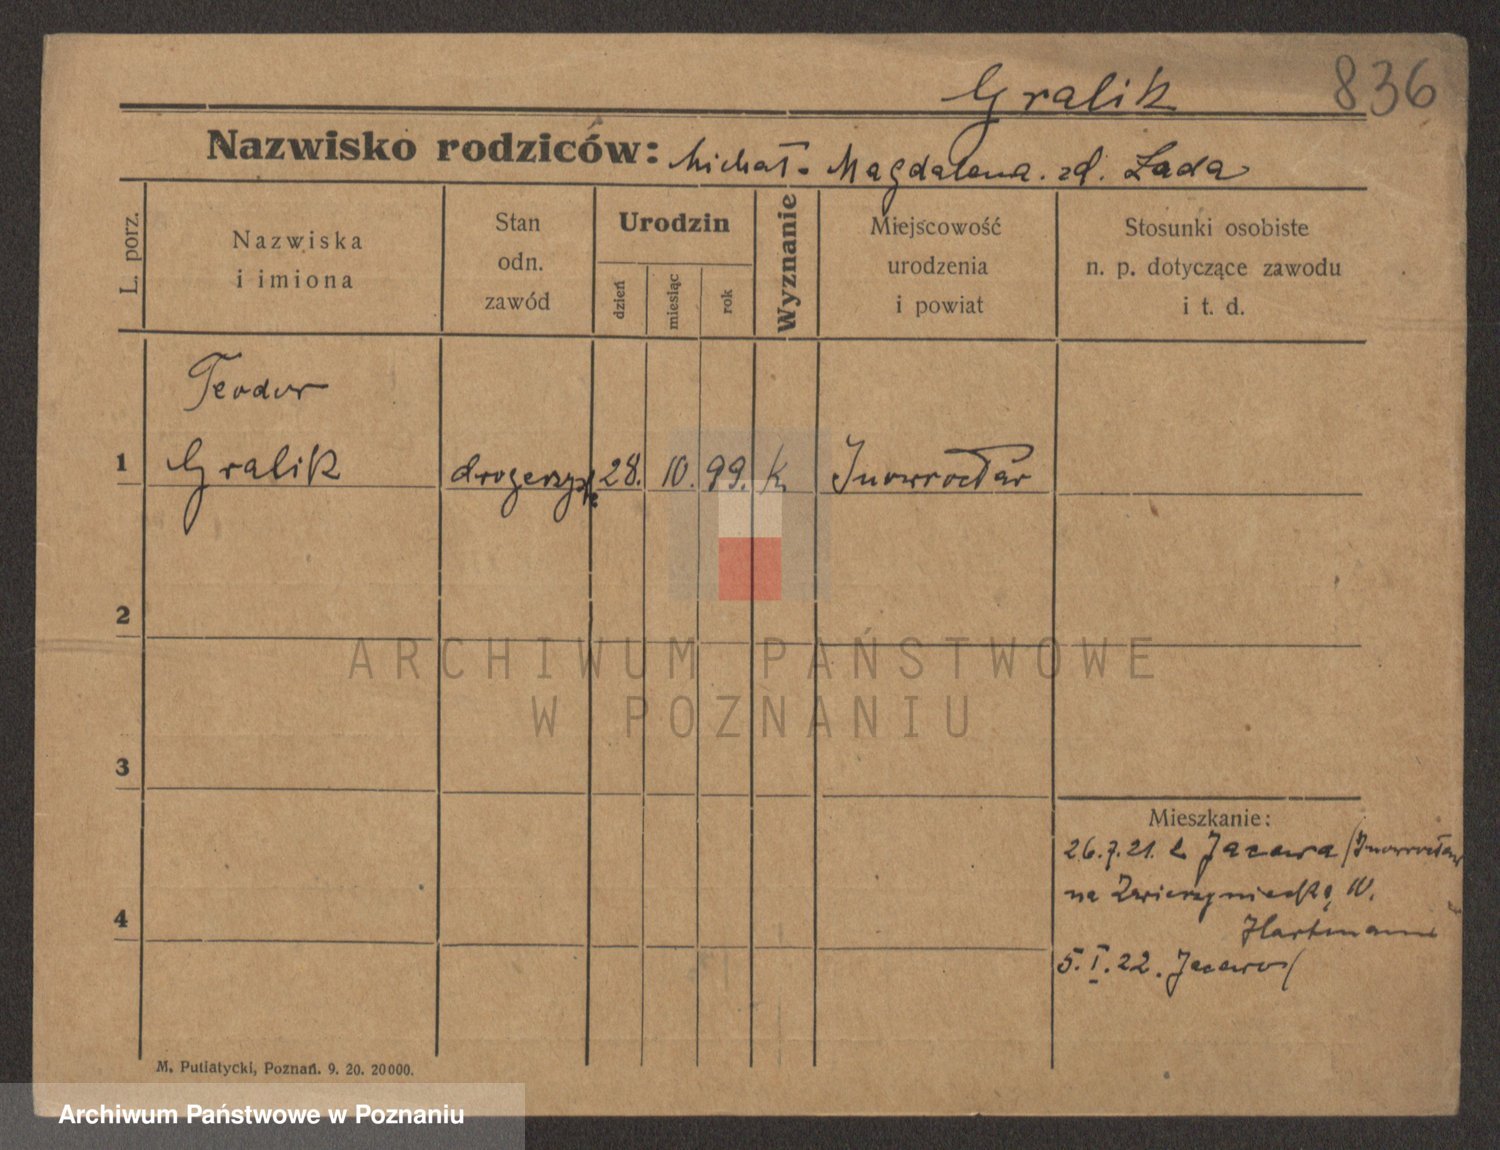 Gralik 836
Nazwisko rodziców: Michał - Magdalena. zd. Łada
L. porz.
Nazwiska
i imiona
Stan
odn.
zawód
Urodzin
dzień
miesiąc
rok
Wyznanie
Miejscowość
urodzenia
i powiat
Stosunki osobiste
n. p. dotyczące zawodu
i t. d.
Teodor
1 Gralik drogerzysta 28. 10. 99. k. Inowrocław
2
ARCHIWUM PAŃSTWOWE
W POZNANIU
3
Mieszkanie:
26.7.21. z Jacewa / Inowrocław
na Zwierzyniecką IV.
Hartmann
4
5. I. 22. Jacewo /
M. Putiatycki, Poznań. 9. 20. 20000.
Archiwum Państwowe w Poznaniu